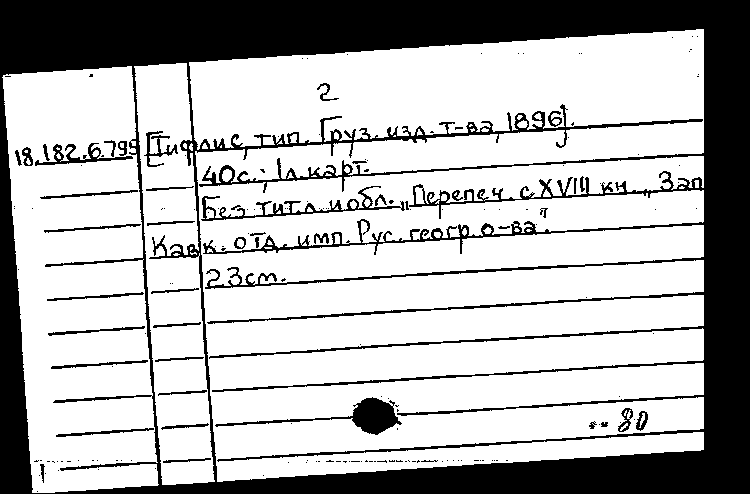 2
18.182.6.799 [Тифлис, тип. Груз. изд. т-ва, 1896].
40с.; 1л.карт.
Без тит.л. и обл. „Перепеч. с XVIII кн. „Зап
Кавк. отд. имп. Рус. геогр. о-ва".
23см.
80